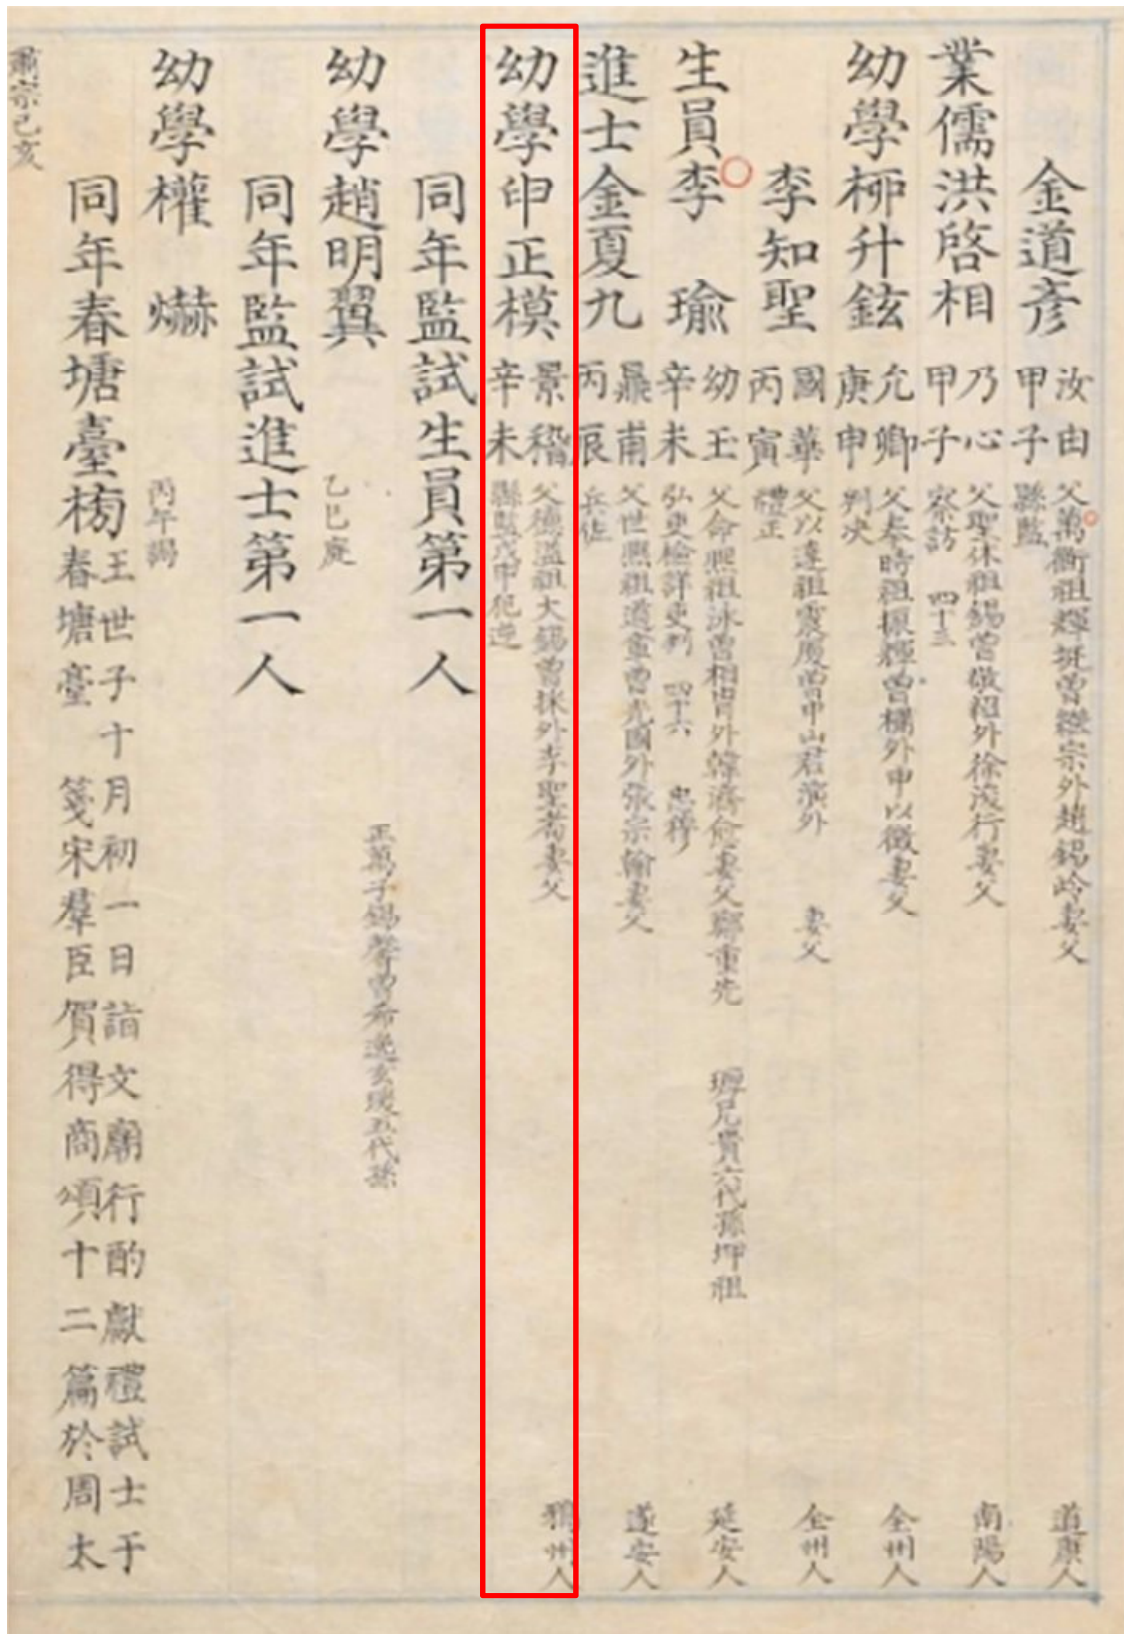 金道彥 汝由 甲子 父萬衡祖輝挺曾繼宗外趙錫岭妻父 縣監 道康人
業儒洪啓相 乃心 甲子 父聖休祖錫曾敬紹外徐浚行妻父 察訪 四十三 南陽人
幼學柳升鉉 允卿 庚申 父奉時祖振輝曾櫺外申以徵妻父 判決 全州人
李知聖 國華 丙寅 父以達祖震厦曾甲山君濱外 妻父 禮正 全州人
生員李 瑜 幼玉 辛未 父命熙祖泳曾相胄外韓濟愈妻父鄭重先 弘吏檢詳吏判 四十六 忠穆 璭兄貴六代孫坤祖 延安人
進士金夏九 鼎甫 丙辰 父世熙祖道重曾光國外張宗翰妻父 兵佐 遂安人
幼學申正模 景楷 辛未 父德溋祖大錫曾埰外李聖耇妻父 縣監戊申犯逆 鵝州人
同年監試生員第一人
幼學趙明翼 乙巳庭 正萬子錫馨曾希逸玄瑗五代孫
同年監試進士第一人
幼學權 爀 丙午謁
同年春塘臺榜 王世子十月初一日詣文廟行酌獻禮試士于
春塘臺 箋宋羣臣賀得商頌十二篇於周太
肅宗己亥